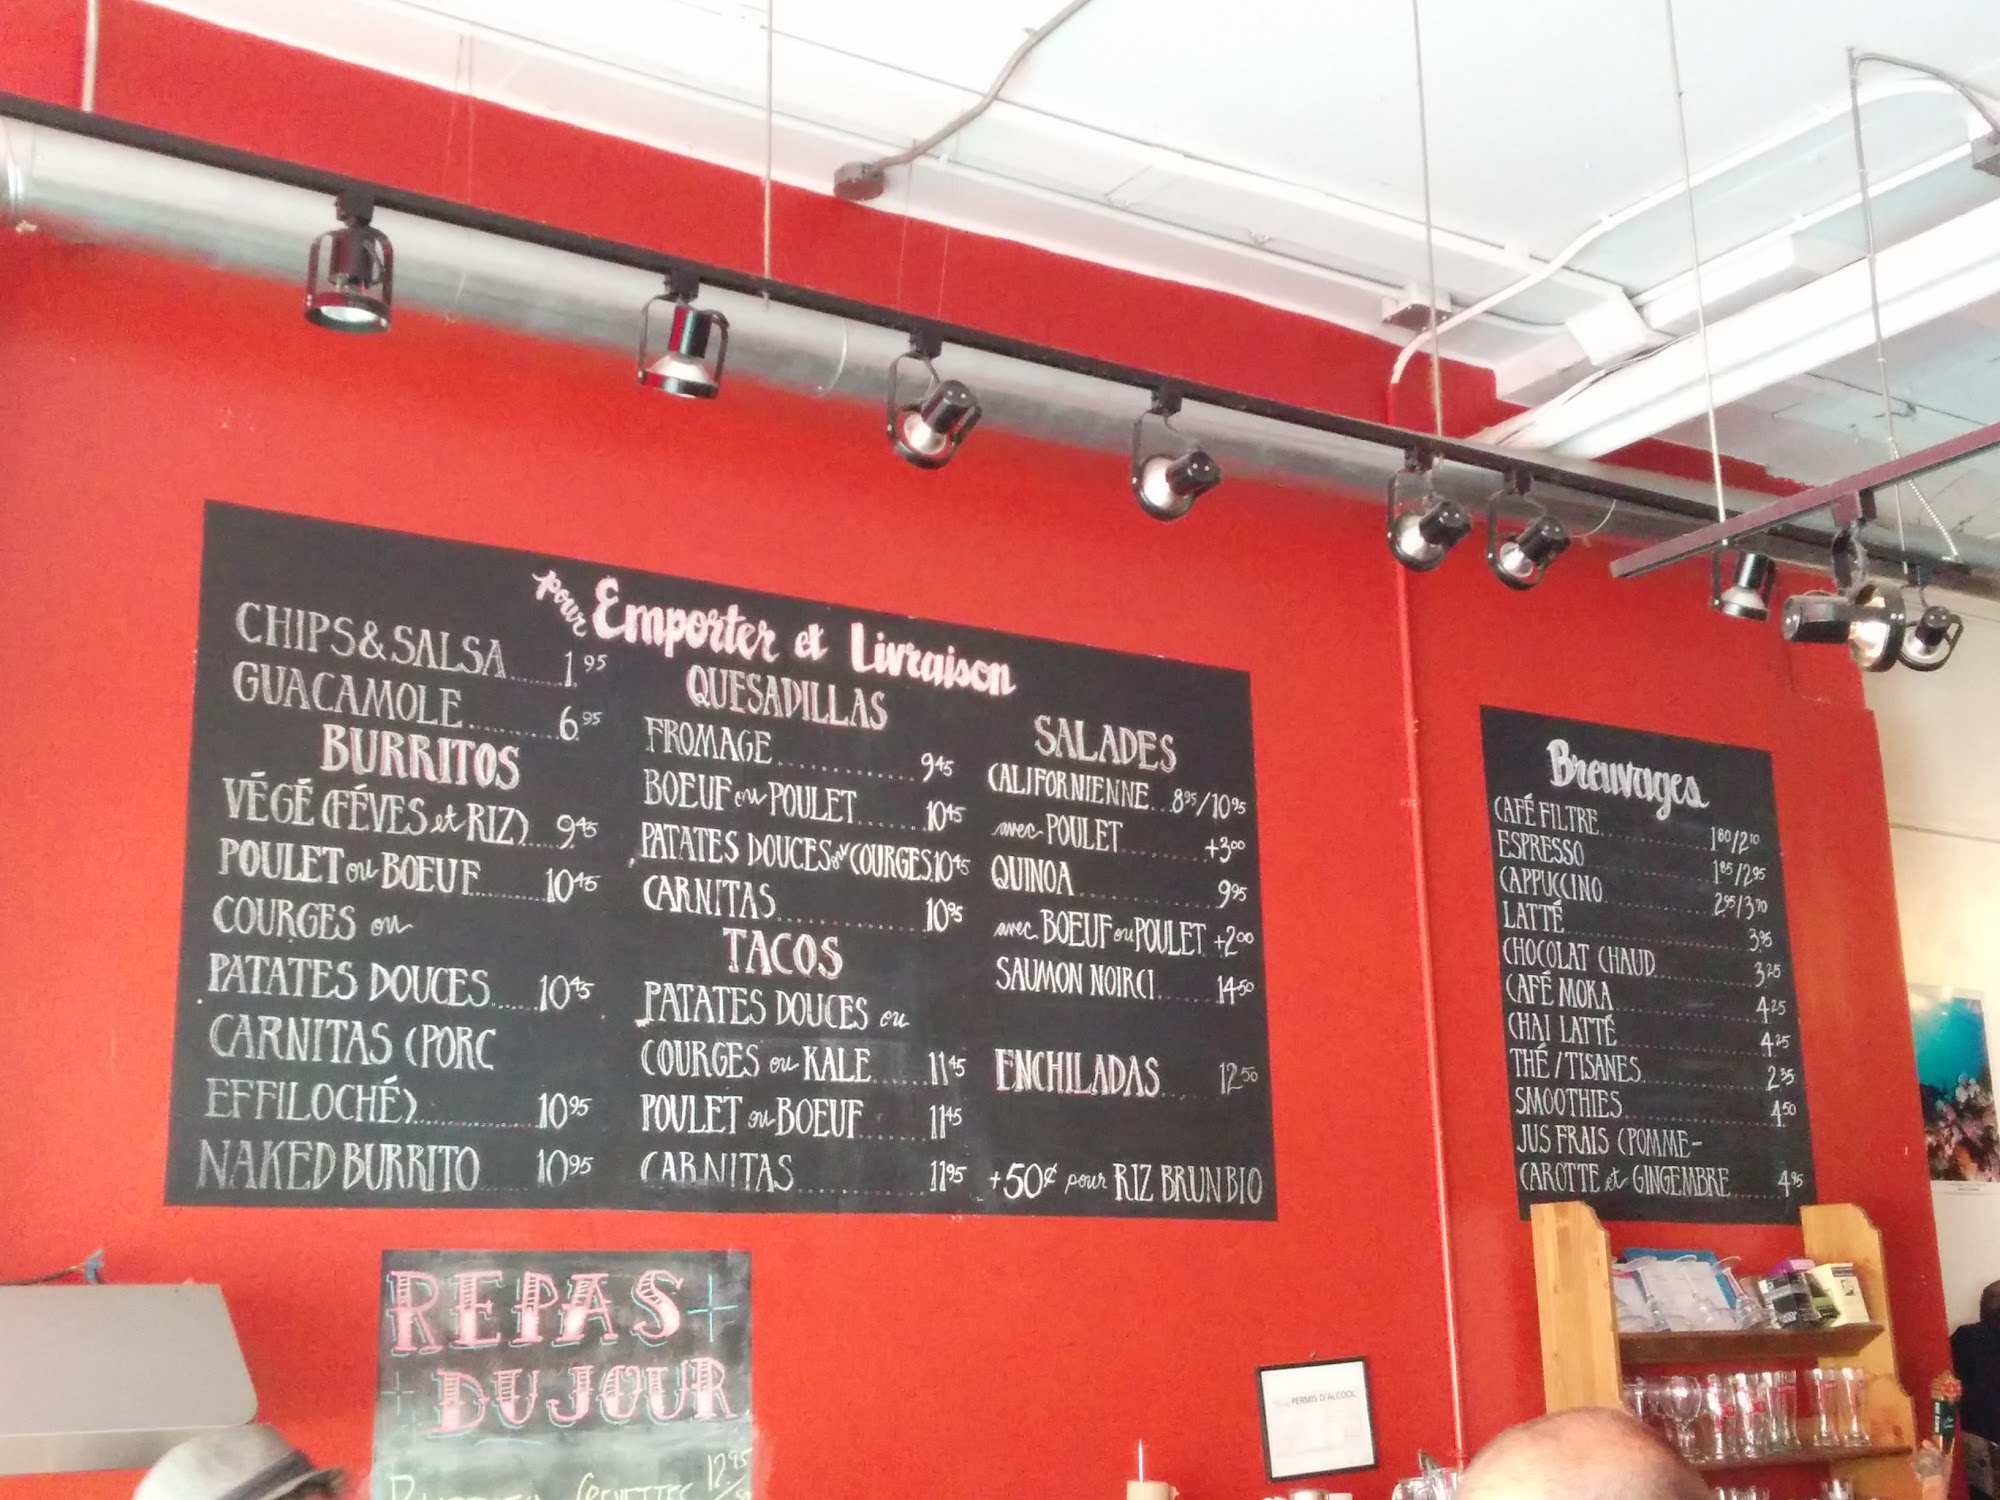 pour Emporter et Livraison
CHIPS & SALSA 1.95
GUACAMOLE 6.95
BURRITOS
VÉGÉ (FÉVES et RIZ) 9 45
POULET ou BOEUF 10 45
COURGES ou
PATATES DOUCES 10 45
CARNITAS (PORC
EFFILOCHÉ) 10 95
NAKED BURRITO 10 95
QUESADILLAS
FROMAGE 9 45
BOEUF ou POULET 10 45
PATATES DOUCES ou COURGES 10 45
CARNITAS 10 95
TACOS
PATATES DOUCES ou
COURGES ou KALE 11 45
POULET ou BOEUF 11 45
CARNITAS 11 95
SALADES
CALIFORNIENNE 8 95/10 95
avec POULET +3 00
QUINOA 9 95
avec BOEUF ou POULET +2 00
SAUMON NOIRCI 14 50
ENCHILADAS 12 50
+50¢ pour RIZ BRUN BIO
Breuvages
CAFÉ FILTRE 1 80/2 10
ESPRESSO 1 85/2 95
CAPPUCCINO 2 95/3 70
LATTÉ 3.95
CHOCOLAT CHAUD 3 25
CAFÉ MOKA 4 25
CHAI LATTÉ 4 25
THÉ / TISANES 2 35
SMOOTHIES 4 50
JUS FRAIS (POMME-
CAROTTE et GINGEMBRE 4 95
REPAS
DU JOUR
CREVETTES 12.95
PERMIS D'ALCOOL